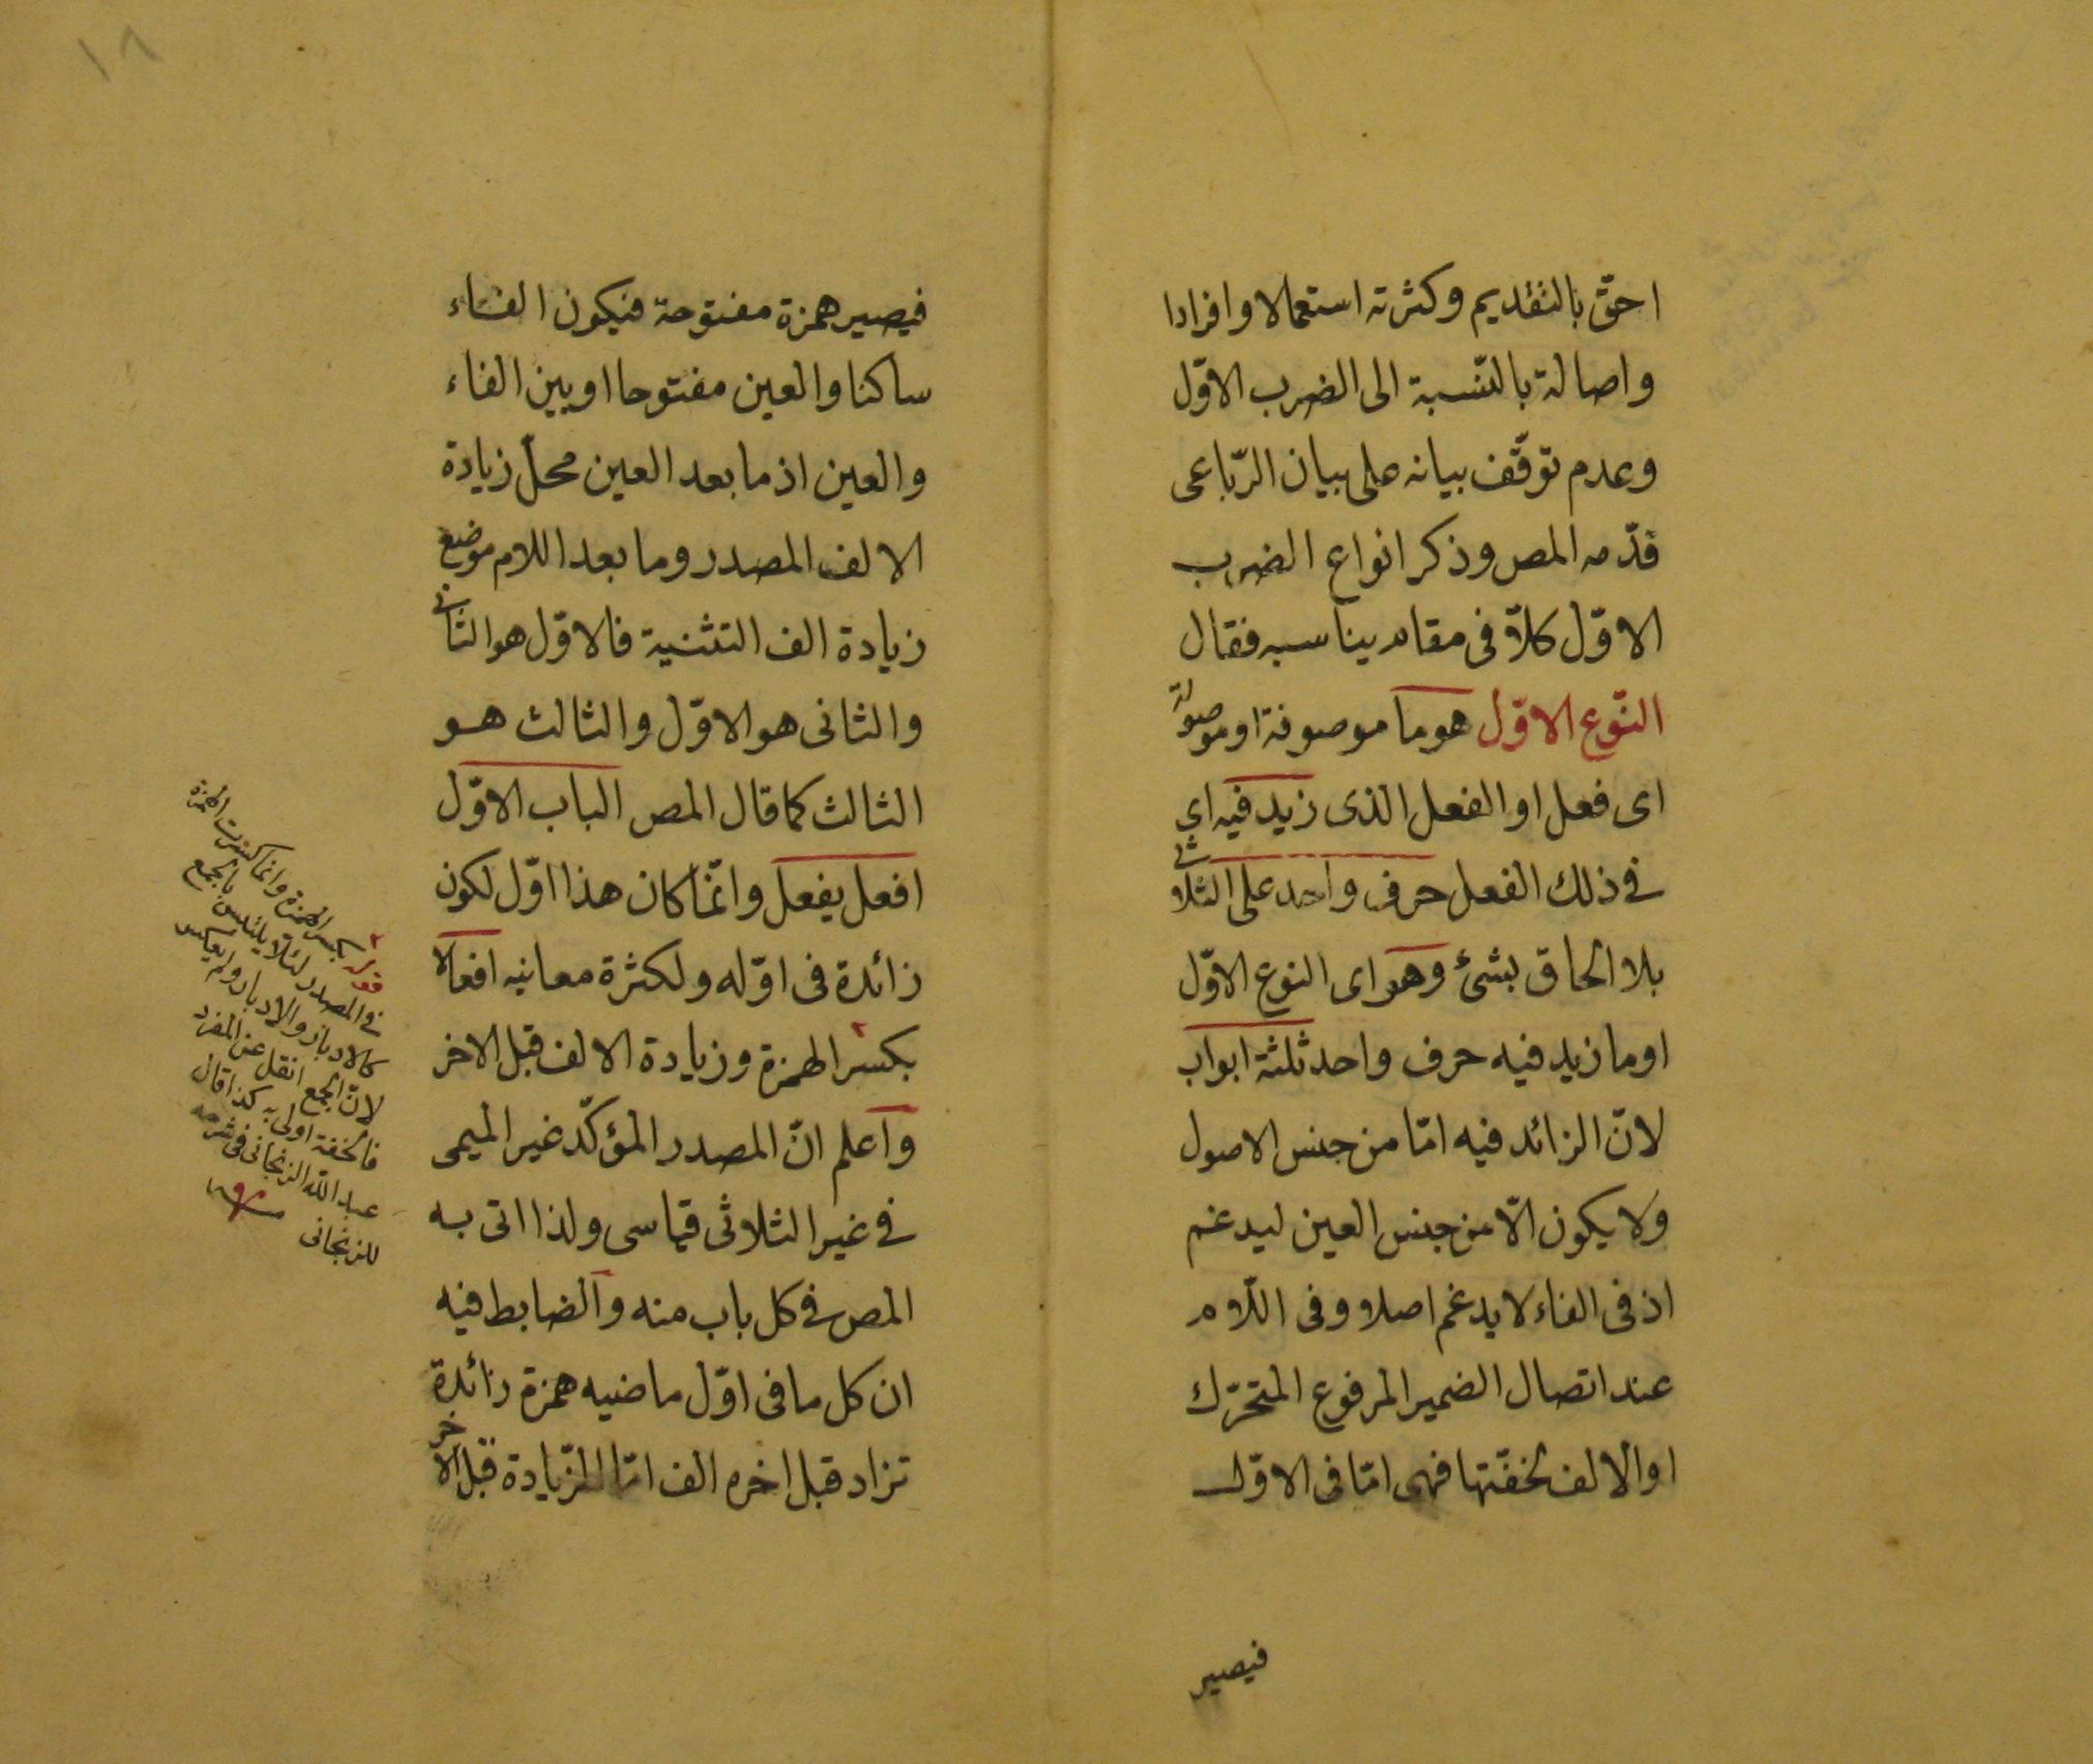 احقّ بالتقديم وكثرته استعمالا وافرادا
واصالة بالنّسبة الى الضرب الاوّل
وعدم توقّف بيانه على بيان الرّباعى
قدّمه المص وذكر انواع الضرب
الاوّل كلاّ فى مقام يناسبه فقال
النّوع الاوّل هو ما موصوفة او موصولة
اى فعل او الفعل الذى زيد فيه اى
فى ذلك الفعل حرف واحد على الثلاثى
بلا الحاق بشئ وهو اى النوع الاوّل
او ما زيد فيه حرف واحد ثلثة ابواب
لانّ الزائد فيه امّا من جنس الاصول
ولا يكون الّا من جنس العين ليدغم
اذ فى الفاء لا يدغم اصلا وفى اللّام
عند اتصال الضمير المرفوع المتحرّك
او الالف لخفّتها فهى امّا فى الاوّل
فيصير
١٨
فيصير همزة مفتوحة فيكون الفاء
ساكنا والعين مفتوحا او بين الفاء
والعين اذ ما بعد العين محلّ زيادة
الالف المصدر وما بعد اللام موضع
زيادة الف التثنية فالاوّل هو الثانى
والثانى هو الاوّل والثالث هو
الثالث كما قال المص الباب الاوّل
افعل يفعل وانّما كان هذا اوّل لكون
زائدة فى اوّله ولكثرة معانيه افعالا
بكسر الهمزة وزيادة الالف قبل الاخر
واعلم انّ المصدر المؤكّد غير الميمى
فى غير الثلاثى قياسى ولذا اتى به
المص فى كل باب منه والضابط فيه
ان كل ما فى اوّل ماضيه همزة زائدة
تزاد قبل اخره الف امّا الزّيادة قبل الاخر
قوله بكسر الهمزة وانما كسرت الهمزة
فى المصدر لئلا يلتبس بالجمع
كالادبار والادبار ولم يعكس
لانّ الجمع اثقل عن المفرد
فالخفة اولى به كذا قال
عبد الله الزنجانى فى شرحه
للزنجانى